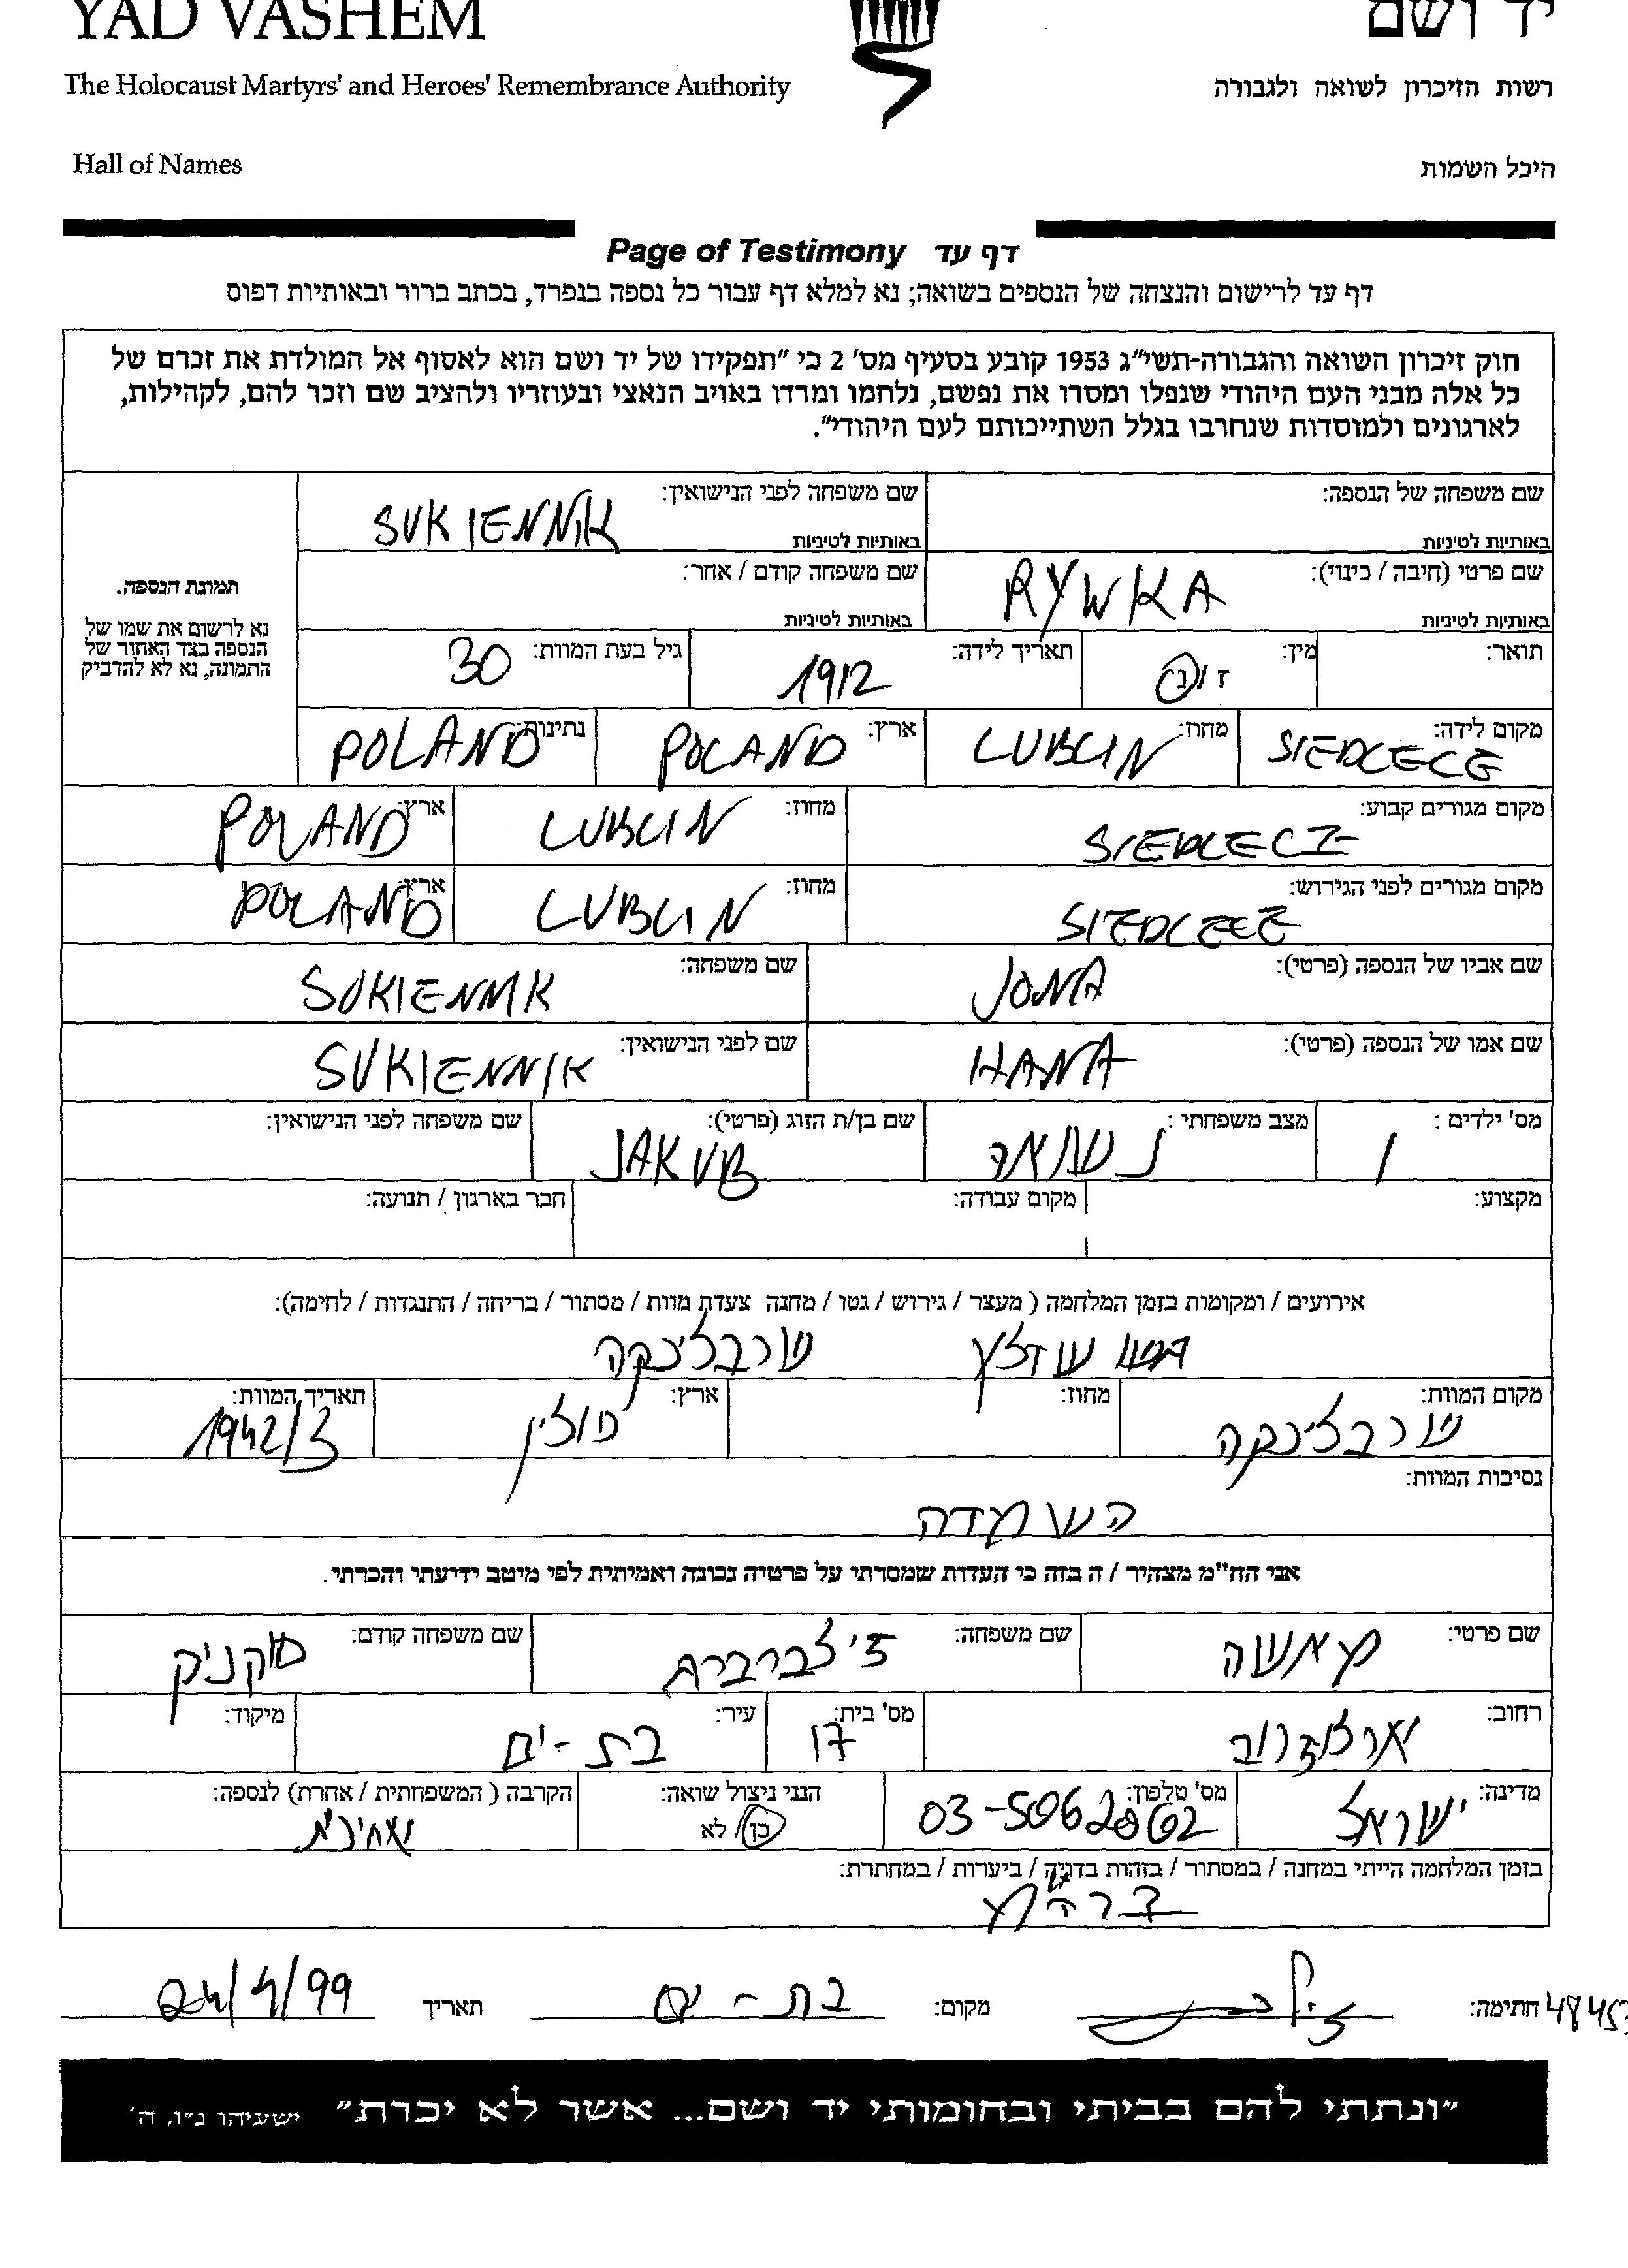 YAD VASHEM יד ושם
The Holocaust Martyrs' and Heroes' Remembrance Authority רשות הזיכרון לשואה ולגבורה
Hall of Names היכל השמות
Page of Testimony דף עד
דף עד לרישום והנצחה של הנספים בשואה; נא למלא דף עבור כל נספה בנפרד, בכתב ברור ובאותיות דפוס
חוק זיכרון השואה והגבורה-תשי"ג 1953 קובע בסעיף מס' 2 כי "תפקידו של יד ושם הוא לאסוף אל המולדת את זכרם של
כל אלה מבני העם היהודי שנפלו ומסרו את נפשם, נלחמו ומרדו באויב הנאצי ובעוזריו ולהציב שם וזכר להם, לקהילות,
לארגונים ולמוסדות שנחרבו בגלל השתייכותם לעם היהודי".
שם משפחה של הנספה: שם משפחה לפני הנישואין: SUKIENNIK
באותיות לטיניות באותיות לטיניות
שם פרטי (חיבה / כינוי): RYWKA שם משפחה קודם / אחר:
באותיות לטיניות באותיות לטיניות
תמונת הנספה.
נא לרשום את שמו של
הנספה בצד האחור של
התמונה, נא לא להדביק
תואר: מין: ז / נ תאריך לידה: 1912 גיל בעת המוות: 30
מקום לידה: SIEDLECE מחוז: LUBLIN ארץ: POLAND נתינות: POLAND
מקום מגורים קבוע: מחוז: LUBLIN ארץ: POLAND
מקום מגורים לפני הגירוש: מחוז: LUBLIN ארץ: POLAND
שם אביו של הנספה (פרטי): JONA שם משפחה: SUKIENNIK
שם אמו של הנספה (פרטי): HANA שם לפני הנישואין: SUKIENNIK
מס' ילדים: 1 מצב משפחתי: נשואה שם בן/ת הזוג (פרטי): JAKUB שם משפחה לפני הנישואין:
מקצוע: מקום עבודה: חבר בארגון / תנועה:
אירועים / ומקומות בזמן המלחמה ( מעצר / גירוש / גטו / מחנה צעדת מוות / מסתור / בריחה / התנגדות / לחימה):
גטו שדלץ טרבלינקה
מקום המוות: טרבלינקה מחוז: ארץ: פולין תאריך המוות: 1942/3
נסיבות המוות:
השמדה
אני הח"מ מצהיר / ה בזה כי העדות שמסרתי על פרטיה נכונה ואמיתית לפי מיטב ידיעתי והכרתי.
שם פרטי: מאשה שם משפחה: זילברברג שם משפחה קודם: סוקניק
רחוב: ארלוזרוב מס' בית: 17 עיר: בת-ים מיקוד:
מדינה: ישראל מס' טלפון: 03-5062862 הנני ניצול שואה: כן / לא הקרבה ( המשפחתית / אחרת) לנספה: אחינית
בזמן המלחמה הייתי במחנה / במסתור / בזהות בדויה / ביערות / במחתרת:
ברה"מ
חתימה: מקום: בת-ים תאריך 24/4/99
"ונתתי להם בביתי ובחומותי יד ושם... אשר לא יכרת" ישעיהו נ"ו, ה'